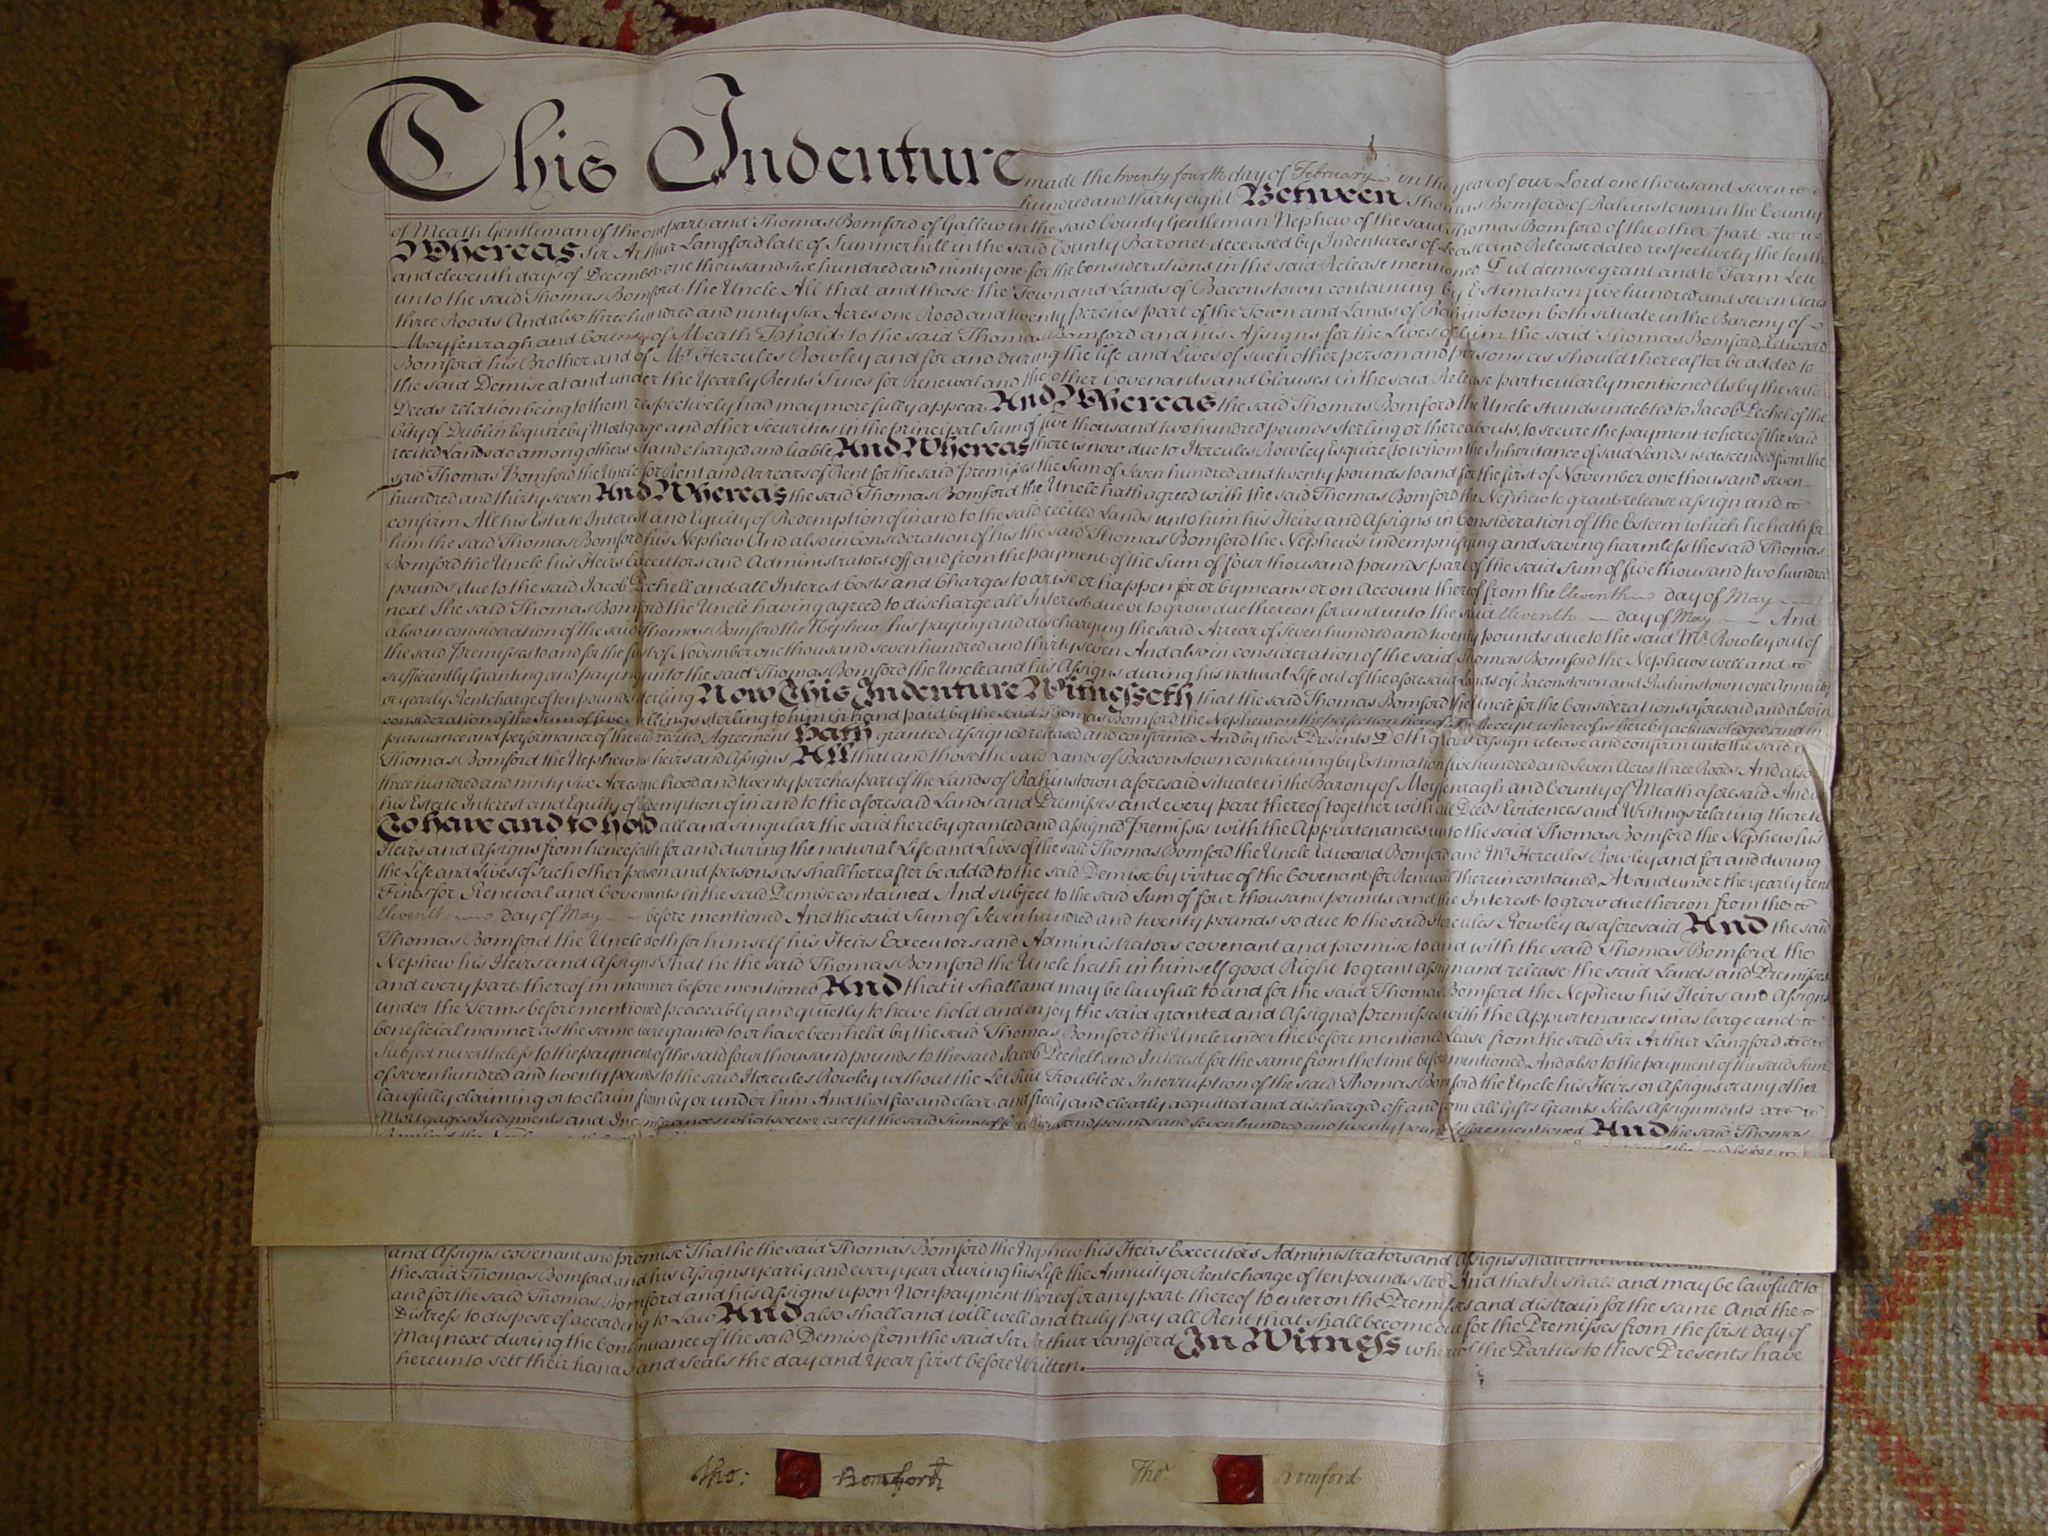 This Indenture made the twenty fourth day of February in the year of our Lord one thousand seven
hundred and thirty eight Between Thomas Bomford of Rahinstown in the County
of Meath Gentleman of the one part and Thomas Bomford of Gallow in the said County Gentleman Nephew of the said Thomas Bomford of the other part
Whereas Sir Arthur Langford late of Summerhill in the said County Baronet deceased by Indentures of Lease and Release dated respectively the tenth
and eleventh days of December one thousand six hundred and ninty one for the Considerations in the said Release mentioned Did demise grant and to Farm Lett
unto the said Thomas Bomford the Uncle All that and those the Town and Lands of Baconstown containing by Estimation five hundred and seven Acres
three Roods And also three hundred and ninty six Acres one Rood and twenty perches part of the Town and Lands of Rahinstown both situate in the Barony of
Moyfenragh and County of Meath To hold to the said Thomas Bomford and his Assigns for the Lives of him the said Thomas Bomford, Edward
Bomford his Brother and of Mr. Hercules Rowley and for and during the life and Lives of such other person and persons as should thereafter be added to
the said Demise at and under the Yearly Rents Fines for Renewal and the other Covenants and Clauses in the said Release particularly mentioned As by the said
Deeds relation being to them respectively had may more fully appear And Whereas the said Thomas Bomford the Uncle stands indebted to Jacob Pechel of the
City of Dublin Esquire by Mortgage and other Securities in the principal Sum of five thousand two hundred pounds sterling or thereabouts, to secure the payment whereof the said
recited Lands do among others stand charged and liable And Whereas there is now due to Hercules Rowley Esquire (to whom the Inheritance of said Lands is descended from the
said Thomas Bomford the Uncle for Rent and Arrears of Rent for the said Premisses the Sum of Seven hundred and twenty pounds to and for the first of November one thousand seven
hundred and thirty seven And Whereas the said Thomas Bomford the Uncle hath agreed with the said Thomas Bomford the Nephew to grant release assign and
confirm All his Estate Interest and Equity of Redemption of in and to the said recited Lands unto him his Heirs and Assigns in Consideration of the Esteem which he hath for
him the said Thomas Bomford his Nephew And also in consideration of his the said Thomas Bomford the Nephew's indempnifying and saving harmless the said Thomas
Bomford the Uncle his Heirs Executors and Administrators off and from the payment of the Sum of four thousand pounds part of the said Sum of five thousand two hundred
pounds due to the said Jacob Pechell and all Interest Costs and Charges to arise or happen for or by means or on Account thereof from the Eleventh day of May
next The said Thomas Bomford the Uncle having agreed to discharge all Interest due or to grow due thereon for and unto the said Eleventh day of May And
also in consideration of the said Thomas Bomford the Nephew his paying and discharging the said Arrear of Seven hundred and twenty pounds due to the said Mr. Rowley out of
the said Premisses to and for the first of November one thousand seven hundred and thirty seven And also in consideration of the said Thomas Bomford the Nephews well and
sufficiently Granting and paying unto the said Thomas Bomford the Uncle and his Assigns during his natural Life out of the aforesaid Lands of Baconstown and Rahinstown one Annuity
or yearly Rentcharge of ten pounds sterling Now This Indenture Witnesseth that the said Thomas Bomford the Uncle for the Considerations aforesaid and also in
consideration of the Sum of five shillings sterling to him in hand paid by the said Thomas Bomford the Nephew on the perfection hereof the Receipt whereof is hereby acknowledged and in
pursuance and performance of the said recited Agreement Hath granted Assigned released and confirmed And by these Presents Doth grant assign release and confirm unto the said
Thomas Bomford the Nephew his heirs and Assigns All that and those the said Lands of Baconstown containing by Estimation five hundred and seven Acres three Roods And also
three hundred and ninty six Acres one Rood and twenty perches part of the Lands of Rahinstown aforesaid situate in the Barony of Moyfenragh and County of Meath aforesaid And
his Estate Interest and Equity of Redemption of in and to the aforesaid Lands and Premisses and every part thereof together with all Deeds Evidences and Writings relating thereto
To have and to hold all and singular the said hereby granted and assigned Premisses with the Appurtenances unto the said Thomas Bomford the Nephew his
Heirs and Assigns from henceforth for and during the natural Life and Lives of the said Thomas Bomford the Uncle Edward Bomford and Mr. Hercules Rowley and for and during
the Life and Lives of such other person and persons as shall hereafter be added to the said Demise by virtue of the Covenant for Renewal therein contained At and under the yearly rent
Fines for Renewal and Covenants in the said Demise contained And subject to the said Sum of four thousand pounds and the Interest to grow due thereon from the
Eleventh day of May before mentioned And the said Sum of Seven hundred and twenty pounds so due to the said Hercules Rowley as aforesaid And the said
Thomas Bomford the Uncle doth for himself his Heirs Executors and Administrators covenant and promise to and with the said Thomas Bomford the
Nephew his Heirs and Assigns That he the said Thomas Bomford the Uncle hath in himself good Right to grant assign and release the said Lands and Premisses
and every part thereof in manner before mentioned And that it shall and may be lawfull to and for the said Thomas Bomford the Nephew his Heirs and Assigns
under the Terms before mentioned peaceably and quietly to have hold and enjoy the said granted and Assigned Premisses with the Appurtenances in as large and
beneficial manner as the same were granted to or have been held by the said Thomas Bomford the Uncle under the before mentioned Lease from the said Sir Arthur Langford
Subject nevertheless to the payment of the said four thousand pounds to the said Jacob Pechell and Interest for the same from the time before mentioned, And also to the payment of the said Sum
of seven hundred and twenty pounds to the said Hercules Rowley without the Let Suit Trouble or Interruption of the said Thomas Bomford the Uncle his Heirs or Assigns or any other
lawfully claiming or to claim from by or under him And that free and clear and freely and clearly acquitted and discharged off and from all Gifts Grants Sales Assignments
Mortgages Judgments and Incumbrances whatsoever except the said Sums of four thousand pounds and seven hundred and twenty pounds before mentioned And the said Thomas
and Assigns covenant and promise That he the said Thomas Bomford the Nephew his Heirs Executors Administrators and Assigns shall and
the said Thomas Bomford and his Assigns yearly and every year during his Life the Annuity or Rentcharge of ten pounds ster. And that It shall and may be lawfull to
and for the said Thomas Bomford and his Assigns upon Nonpayment thereof or any part thereof to enter on the Premisses and distrain for the same And the
Distress to dispose of according to Law And also shall and will well and truly pay all Rent that shall become due for the Premisses from the first Day of
May next during the Continuance of the said Demise from the said Sir Arthur Langford In Witness whereof the Parties to these Presents have
hereunto sett their hands and seals the day and Year first before Written.
Tho: Bomford Thor. Bomford